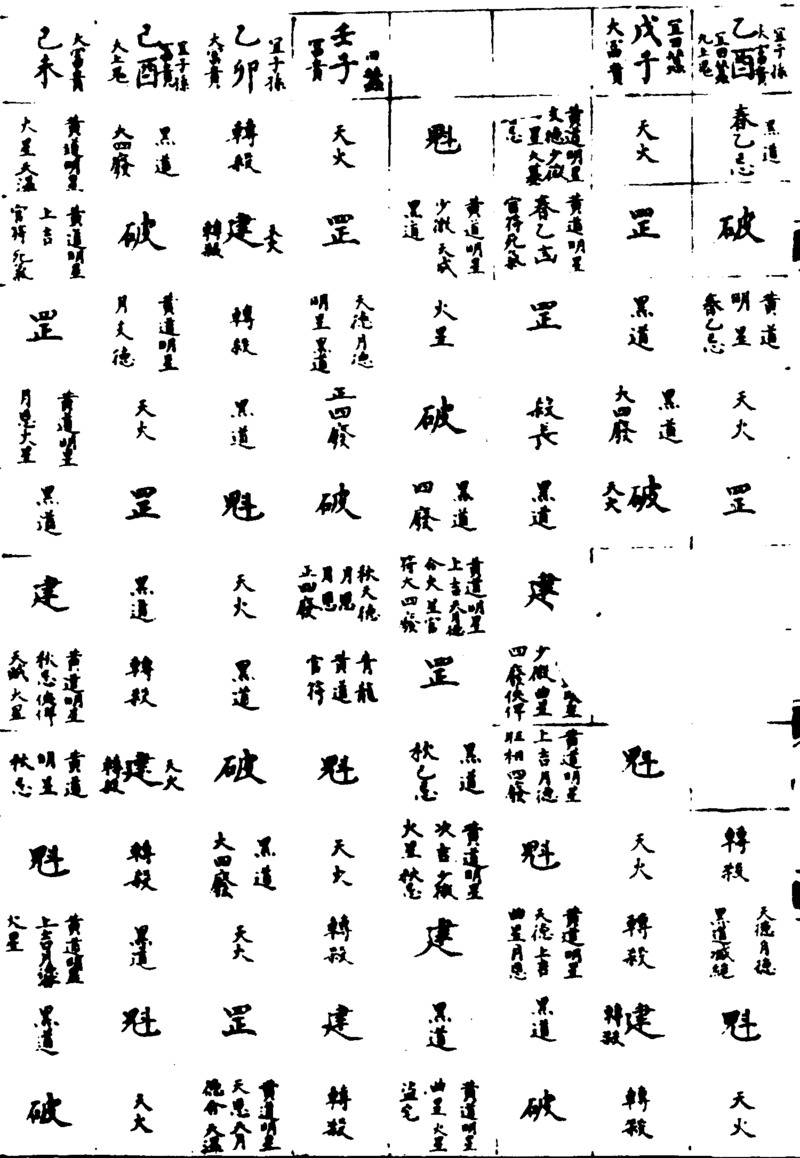 宜子孫
大富貴
乙酉
宜田蚕
九上冤
黑道
春乙忌
破
黄道
明星
春乙忌
天火
罡
轉殺
天德月德
黑道滅絕
魁
天火
宜田蚕
戊子
大富貴
天火
罡
黑道
黑道
大四廢
破
天火
魁
天火
轉殺
建
轉殺
轉殺
黄道明星
文德少微
一星大墓
忌
黄道明星
春乙吉
官符死氣
罡
殺長
黑道
建
少微曲星
四廢伏斷
黄道明星
上吉月德
旺相四廢
魁
黄道明星
天德上吉
曲星月恩
黑道
破
魁
黄道明星
少微天成
黑道
火星
破
黑道
四廢
黄道明星
上吉天月德
合火星官
符大四廢
罡
黑道
秋乙忌
黄道明星
次吉少微
火星秋忌
建
黑道
黄道明星
曲星火星
田蚕
壬子
富貴
天火
罡
天德月德
明星黑道
正四廢
破
秋天德
月恩
月恩
正四廢
青龍
黄道
官符
魁
天火
轉殺
建
轉殺
宜子孫
乙卯
大富貴
轉殺
建
天火
轉殺
轉殺
黑道
魁
天火
黑道
破
黑道
大四廢
天火
罡
黄道明星
天恩天月
德合天瘟
宜子孫
富貴
己酉
大上冤
黑道
大四廢
破
黄道明星
月支德
天火
罡
黑道
轉殺
建
天火
轉殺
轉殺
黑道
魁
天火
大富貴
己未
黄道明星
火星天瘟
黄道明星
上吉
官符死氣
罡
黄道明星
月恩火星
黑道
建
黄道明星
秋忌伏斷
天賊火星
黄道
明星
秋忌
魁
黄道明星
火星
黑道
破